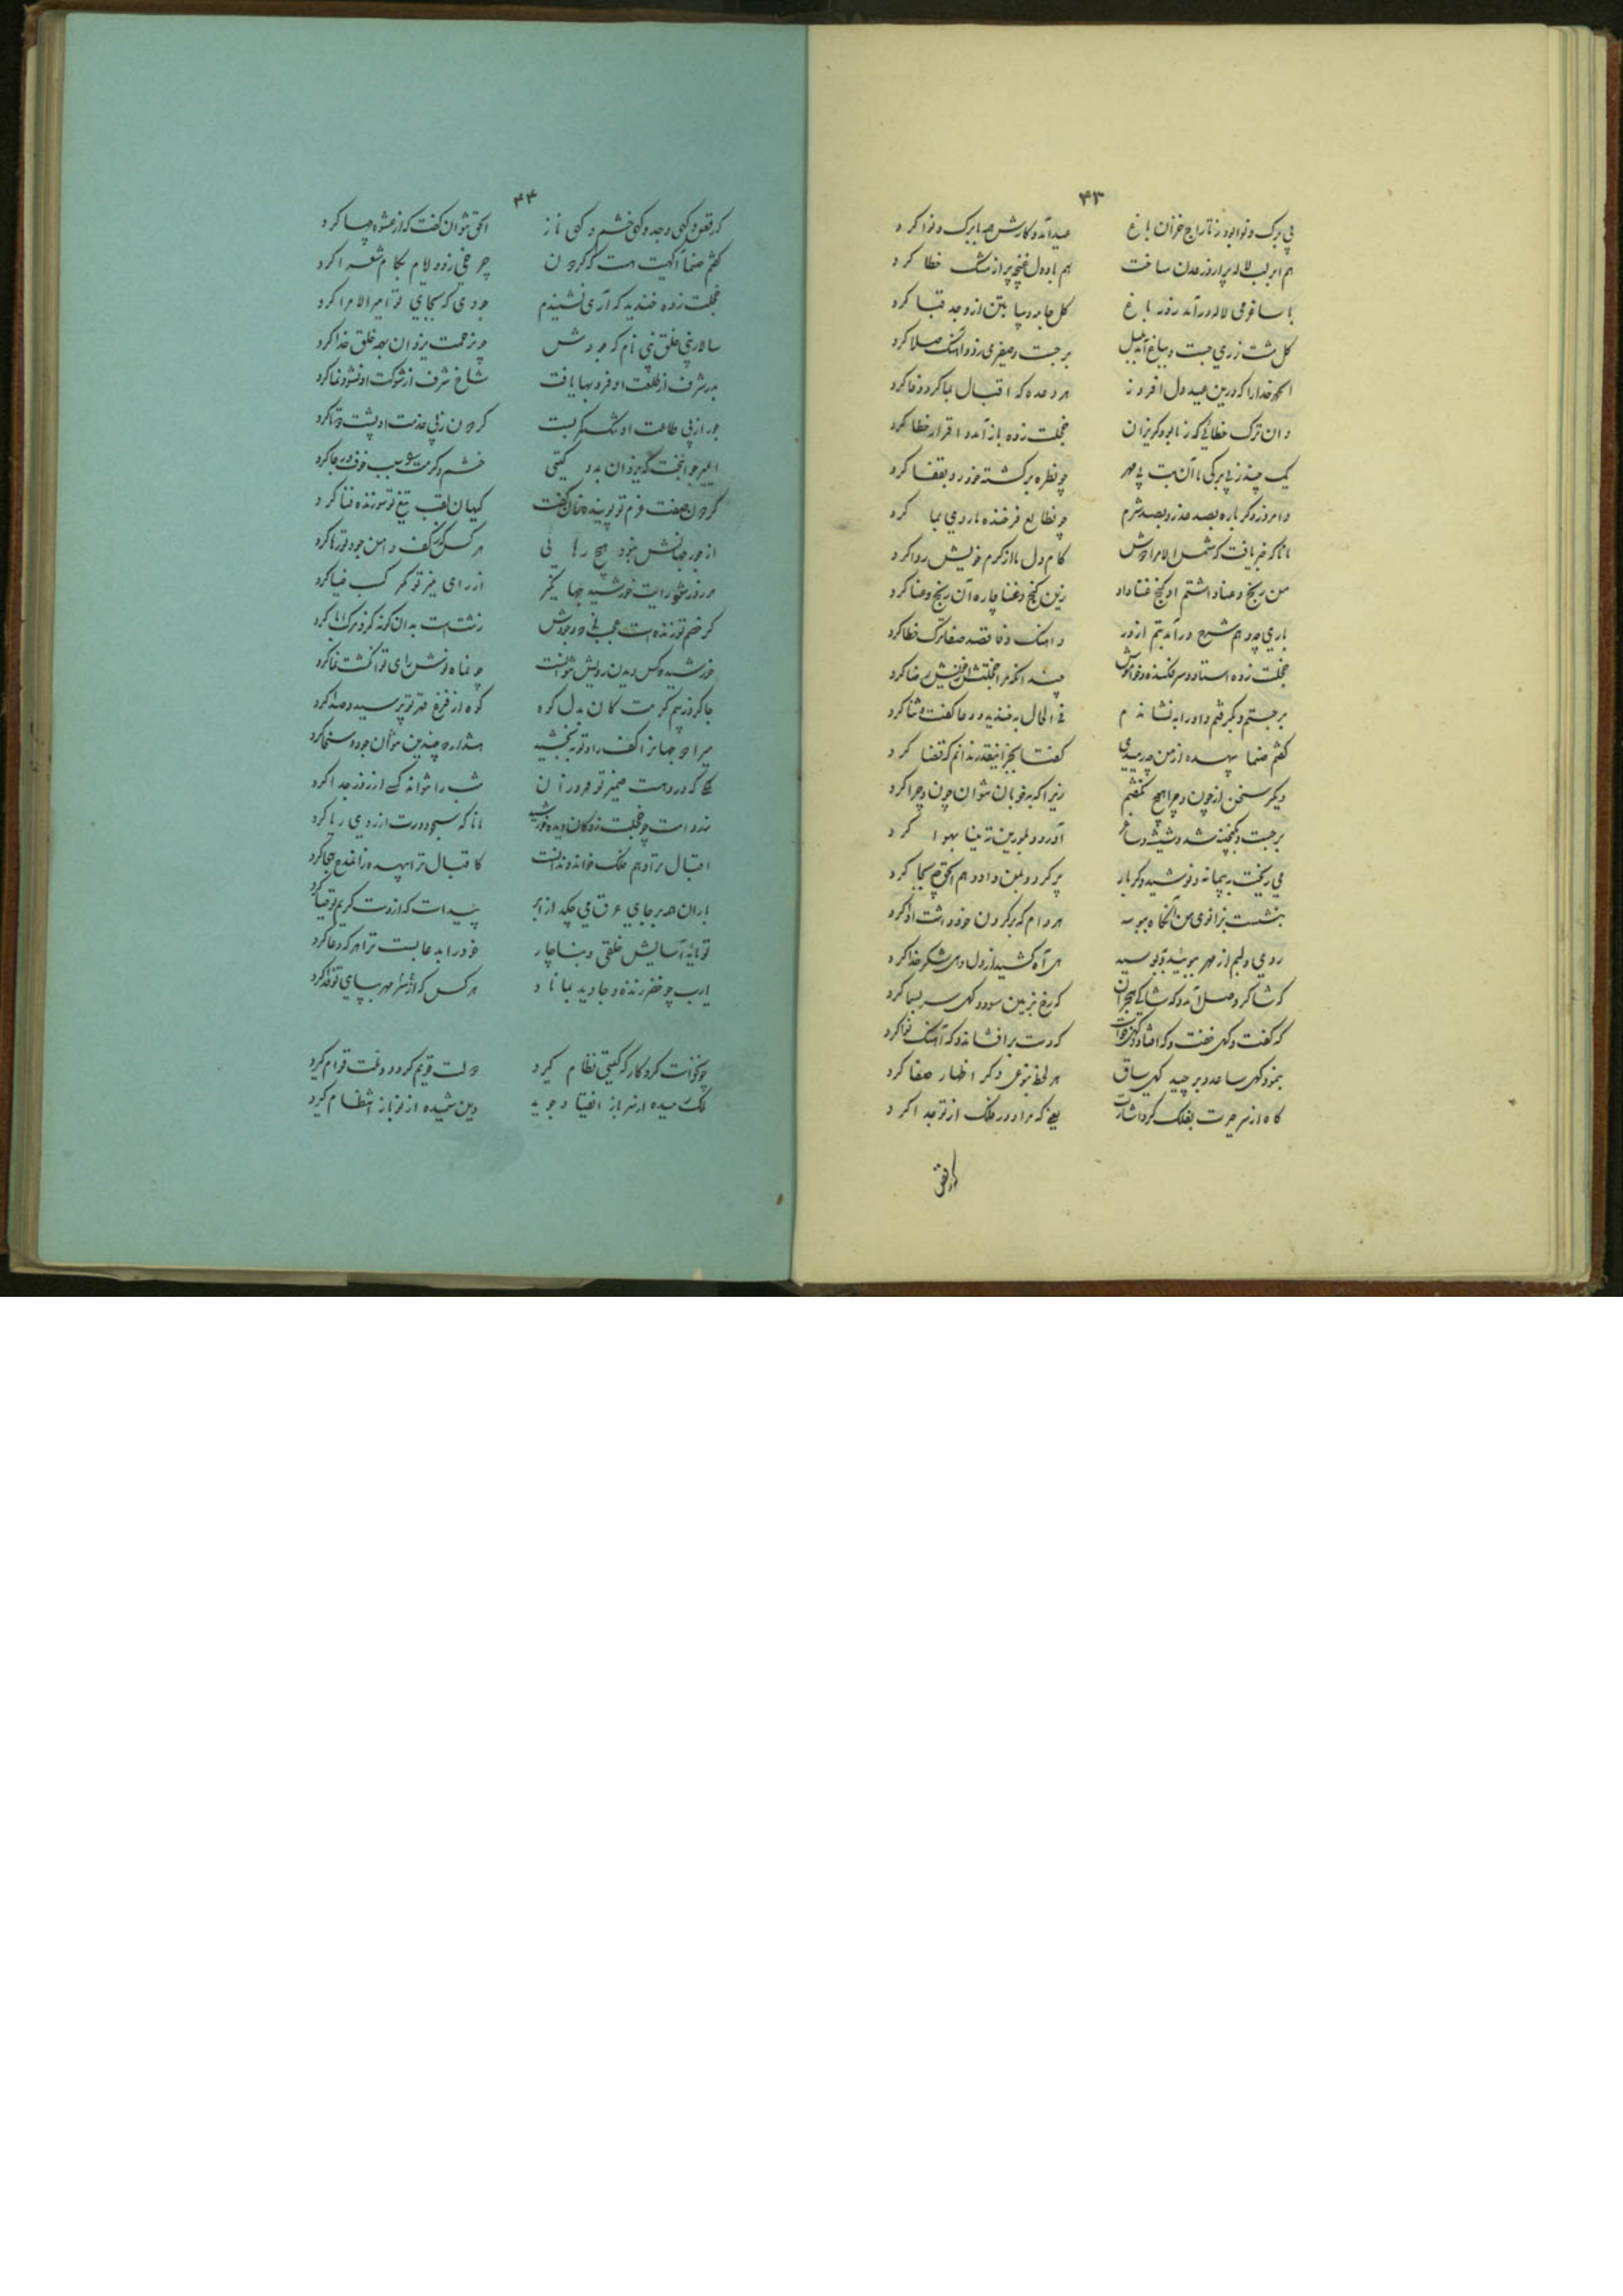 ۴۳
بی برک و نوا بود ز تاراج خزان باغ عید آمد و کارش همه با برک و نوا کرد
هم ابر لب لاله پر از در عدن ساخت هم باد دل غنچه پر از مشک خطا کرد
با ساغر می لاله در آمد ز در باغ کل جامه دیبا بتن از وجد قبا کرد
کل مشت زری جست و بباغ آمد بلبل برجست و صفیری زد و آهنک صلا کرد
الحمد خدا را که درین عید دل افروز هر وعده که اقبال بما کرد وفا کرد
وان ترک خطائی که ز ما بود کریزان خجلت زده باز آمد و اقرار خطا کرد
یک چند ز بی برکی ما آن بت بی مهر چو نظره برکشته خود رو بقفا کرد
و امروز دکر باره بصد عذر و بصد شرم چو نطالع فرخنده ما روی بما کرد
مانا که خبر یافت که شمس الامرا دوش کام دل ما از کرم خویش روا کرد
من رنج و عنا داشتم او کنج غنا داد زین کنج و غنا چاره آن رنج و عنا کرد
باری چو در هم شرح در آمد بتم از در و آهنک وفا قصد صفا ترک خطا کرد
خجلت زده استاد و سر افکنده و خاموش چندانکه مرا خجلتش از خویش رضا کرد
برجستم و بکرفتم و او را بنشاندم فی الحال بخندید و دعا کفت و ثنا کرد
کفتم صنما بیهده از من چه رمیدی کفتا بجز اینقدر ندانم که قضا کرد
دیکر سخن از چون و چرا هیچ نکفتم زیرا که بخوبان نتوان چون و چرا کرد
برجست و بکنجینه شد و شیشه و ساغر آورد و بلورین ته مینا بهوا کرد
می ریخت به پیمانه و نوشید و دکر بار پر کرد و بمن داد و هم الحق چه بجا کرد
بنشست بزانوی من آنکاه ببوسه هر وام که بر کردن خود داشت ادا کرد
روی و لبم از مهر ببوئید و ببوسید هی آه کشید از دل و هی شکر خدا کرد
که شاکر وصل آمد و که شاکی هجران که رخ بزمین سود و کهی سر بسما کرد
که کفت و کهی خفت و که افتاد و کهی خاست که دست برافشاند و که آهنک نوا کرد
بنمود کهی ساعد و بر چید کهی ساق هر لحظه بنوعی دکر اظهار صفا کرد
کاه از سر حیرت بفلک کرد اشارت یعنی که مرا دور فلک از تو جدا کرد
که رقص
۴۴
که رقص و کهی وجد و کهی خشم و کهی ناز الحق نتوان کفت که از عشوه چها کرد
کفتم صنما آکهیت هست که کردون چرخی زد و دلام بکام شعرا کرد
خجلت زده خندید که آری نشنیدم جودی که بجای تو امیر الامرا کرد
سالار نبی خلق نبی نام که جودش چو نرحمت یزدان بهمه خلق خدا کرد
بدر شرف از طلعت او فر و بها یافت شاخ شرف از شوکت او نشو و نما کرد
جوزا ز پی طاعت او تنک کمر بست کردون ز پی خدمت او پشت دو تا کرد
ای میر جوانبخت که یزدان بدو کیتی خشم و کرمت را سبب خوف و رجا کرد
کردون صفت عزم تو پوینده عنان کفت کیهان لقب تیغ تو سوزنده فنا کرد
از جور جهانش نبود هیچ رهائی هر کس که ز کف دامن جود تو رها کرد
هر روز شود رایت خورشید جهانکیر از رای منیر تو مکر کسب ضیا کرد
کر خصم تو زنده است عجب نی که وجودش زشت است بدان کونه که زو مرک ابا کرد
خورشید که کس دیدن رویش نتوانست چو نماه نوش رای تو انکشت نما کرد
جا کرد ز بیم کرمت کان بدل کوه کوه از فزع قهر تو ترسید و صدا کرد
میراد جهانرا کف راد تو ببخشید هشدار که چندین نتوان جود و سخا کرد
جائی که در او هست ضمیر تو فروزان شب را نتواند کسی از روز جدا کرد
زرد است چو خجلت زدکان دیده خورشید مانا که سجودت از روی ریا کرد
اقبال ترا دهم ملک خواند و ندانست کاقبال ترا بیهده زاغاز چه جا کرد
باران همه بر جای عرق می چکد از ابر پیداست که از دست کریم تو حیا کرد
تو مایه آسایش خلقی و بناچار خود را بدعا بست ترا هر که دعا کرد
یارب چو خضر زنده و جاوید بماناد هر کس که از سر مهر بپای تو فدا کرد
چو نخواست کردکار که کیتی نظام کیرد دولت قویم کردد و ملت قوام کیرد
ملک رمیده از سر باز انقیاد جوید دین شمیده از نو باز انتظام کیرد